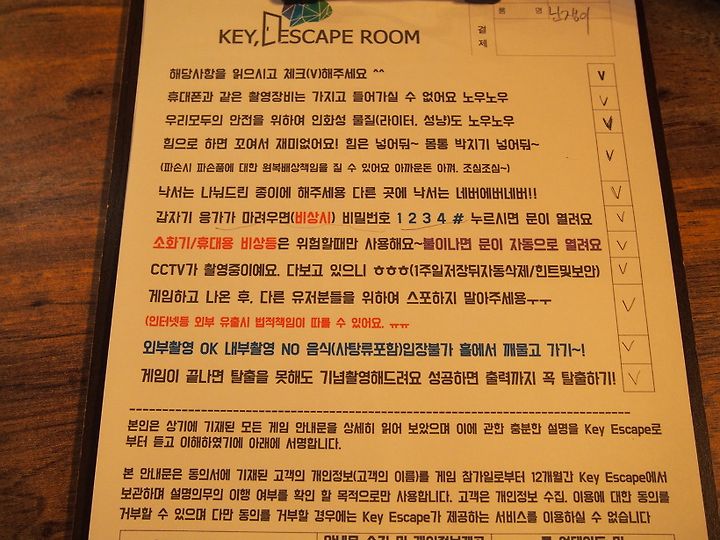 KEY, ESCAPE ROOM
품 명 난쟁이
결제
해당사항을 읽으시고 체크(V)해주세요 ^^
휴대폰과 같은 촬영장비는 가지고 들어가실 수 없어요 노우노우
우리모두의 안전을 위하여 인화성 물질(라이터, 성냥)도 노우노우
힘으로 하면 꼬여서 재미없어요! 힘은 넣어둬~ 몸통 박치기 넣어둬~
(파손시 파손품에 대한 원복배상책임을 질 수 있어요 아까운돈 아껴. 조심조심~)
낙서는 나눠드린 종이에 해주세용 다른 곳에 낙서는 네버에버네버!!
갑자기 응가가 마려우면(비상시) 비밀번호 1 2 3 4 # 누르시면 문이 열려요
소화기/휴대용 비상등은 위험할때만 사용해요~불이나면 문이 자동으로 열려요
CCTV가 촬영중이예요. 다보고 있으니 ㅎㅎㅎ(1주일저장뒤자동삭제/힌트및보안)
게임하고 나온 후, 다른 유저분들을 위하여 스포하지 말아주세용ㅜㅜ
(인터넷등 외부 유출시 법적책임이 따를 수 있어요. ㅠㅠ
외부촬영 OK 내부촬영 NO 음식(사탕류포함)입장불가 홀에서 깨물고 가기~!
게임이 끝나면 탈출을 못해도 기념촬영해드려요 성공하면 출력까지 꼭 탈출하기!
본인은 상기에 기재된 모든 게임 안내문을 상세히 읽어 보았으며 이에 관한 충분한 설명을 Key Escape로
부터 듣고 이해하였기에 아래에 서명합니다.
본 안내문은 동의서에 기재된 고객의 개인정보(고객의 이름)를 게임 참가일로부터 12개월간 Key Escape에서
보관하며 설명의무의 이행 여부를 확인 할 목적으로만 사용합니다. 고객은 개인정보 수집, 이용에 대한 동의를
거부할 수 있으며 다만 동의를 거부할 경우에는 Key Escape가 제공하는 서비스를 이용하실 수 없습니다